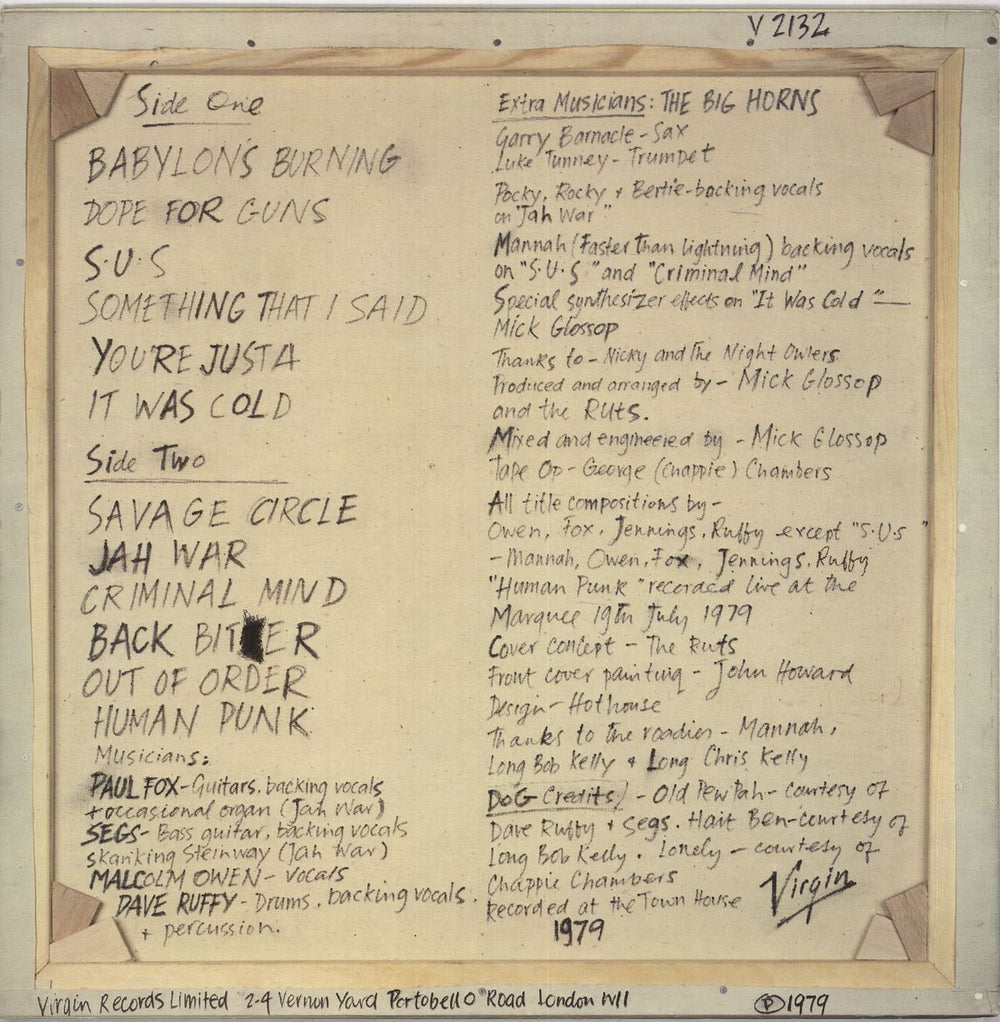 V 2132
Side One
BABYLON'S BURNING
DOPE FOR GUNS
S·U·S
SOMETHING THAT I SAID
YOU'RE JUST A
IT WAS COLD
Side Two
SAVAGE CIRCLE
JAH WAR
CRIMINAL MIND
BACK BITER
OUT OF ORDER
HUMAN PUNK
Musicians:
PAUL FOX-Guitars, backing vocals
+occasional organ (Jah War)
SEGS- Bass guitar, backing vocals
skanking Steinway (Jah War)
MALCOLM OWEN- vocals
DAVE RUFFY- Drums, backing vocals.
+ percussion.
Extra Musicians: THE BIG HORNS
Garry Barnacle-Sax
Luke Tunney-Trumpet
Pocky, Rocky + Bertie-backing vocals
on "Jah War"
Mannah (Faster than lightning) backing vocals
on "S·U·S" and "Criminal Mind"
Special synthesizer effects on "It Was Cold"—
Mick Glossop
Thanks to- Nicky and The Night Owlers
Produced and arranged by- Mick Glossop
and the Ruts.
Mixed and engineered by - Mick Glossop
Tape Op- George (Chappie) Chambers
All title compositions by-
Owen, Fox, Jennings, Ruffy except "S·U·S"
-Mannah, Owen, Fox, Jennings, Ruffy
"Human Punk" recorded live at the
Marquee 19th July 1979
Cover concept - The Ruts
Front cover painting - John Howard
Design- Hothouse
Thanks to the roadies- Mannah,
Long Bob Kelly + Long Chris Kelly
DoG Credits/ - Old Pew Pah- courtesy of
Dave Ruffy + Segs. Hait Ben-courtesy of
Long Bob Kelly. Lonely- courtesy of
Chappie Chambers
Recorded at the Town House
1979
Virgin
Virgin Records Limited 2-4 Vernon Yard Portobello Road London W11
Ⓟ1979